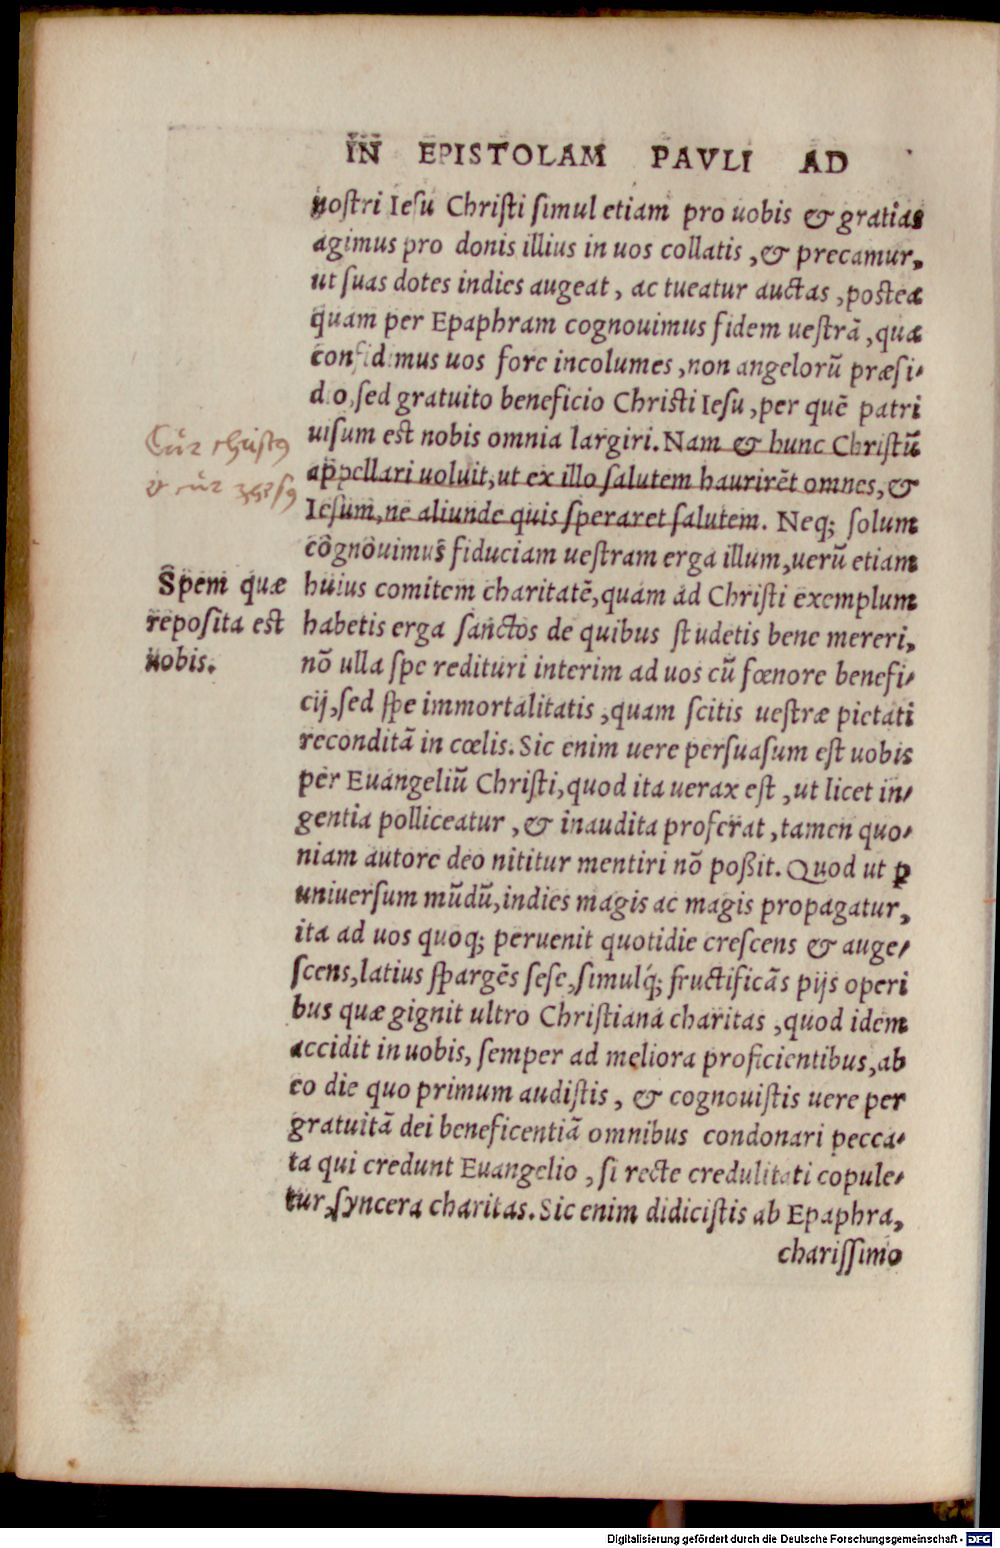 IN EPISTOLAM PAVLI AD
nostri Iesu Christi simul etiam pro uobis & gratias
agimus pro donis illius in uos collatis, & precamur,
ut suas dotes indies augeat, ac tueatur auctas, postea
quam per Epaphram cognouimus fidem uestrã, qua
confidimus uos fore incolumes, non angelorũ præsi-
dio, sed gratuito beneficio Christi Iesu, per quẽ patri
uisum est nobis omnia largiri. Nam & hunc Christũ
appellari uoluit, ut ex illo salutem haurirẽt omnes, &
Iesum, ne aliunde quis speraret salutem. Neq; solum
cognouimus fiduciam uestram erga illum, uerũ etiam
huius comitem charitatẽ, quam ad Christi exemplum
habetis erga sanctos de quibus studetis bene mereri,
nõ ulla spe redituri interim ad uos cũ fœnore benefi-
cij, sed spe immortalitatis, quam scitis uestræ pietati
reconditã in cœlis. Sic enim uere persuasum est uobis
per Euangeliũ Christi, quod ita uerax est, ut licet in-
gentia polliceatur, & inaudita proferat, tamen quo-
niam autore deo nititur mentiri nõ poßit. Quod ut ꝑ
uniuersum mũdũ, indies magis ac magis propagatur,
ita ad uos quoq; peruenit quotidie crescens & auge-
scens, latius spargẽs sese, simulq́; fructificãs pijs operi
bus quæ gignit ultro Christiana charitas, quod idem
accidit in uobis, semper ad meliora proficientibus, ab
eo die quo primum audistis, & cognouistis uere per
gratuitã dei beneficentiã omnibus condonari pecca-
ta qui credunt Euangelio, si recte credulitati copule-
tur, syncera charitas. Sic enim didicistis ab Epaphra,
charissimo
Cur christus
& cur
Spem quæ
reposita est
uobis.
Digitalisierung gefördert durch die Deutsche Forschungsgemeinschaft - DFG